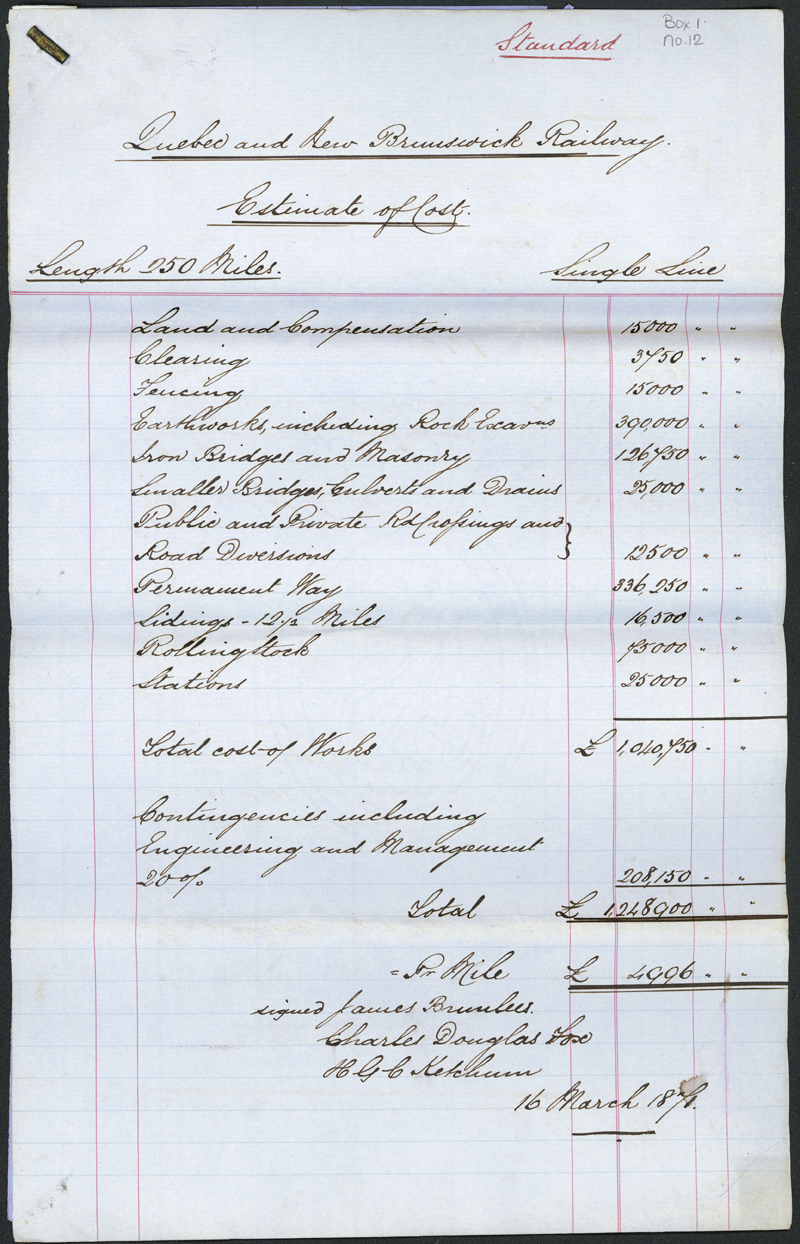 Box 1.
Standard no.12
Quebec and New Brunswick Railway.
Estimate of Cost.
Length 250 Miles. Single Line
Land and Compensation 15000 " "
Clearing 3750 " "
Fencing 15000 " "
Earthworks, including Rock Excavns 390,000 " "
Iron Bridges and Masonry 126750 " "
Smaller Bridges, Culverts and Drains 25,000 " "
Public and Private Rd Crossings and }
Road Diversions 12500 " "
Permament Way 336,250 " "
Sidings - 12½ Miles 16,500 " "
Rolling Stock 75000 " "
Stations 25000 " "
Total cost of Works £ 1,040,750 " "
Contingencies including
Engineering and Management
20 o/o 208,150 " "
Total £ 1,248,900 " "
= Pr Mile £ 4996 " "
signed James Brunlees.
Charles Douglas Fox
H G C Ketchum
16 March 1871.